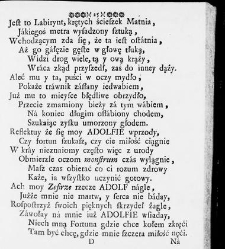 25
Jest to Labirynt, krętych ścieszek Matnia,
Jakiegoś metra wysadzony sztuką,
Wchodzącym zda się, że ta iest ostatnia,
Aż go gąszcz gęste w głowę stuką,
Widzi drog wiele, tą y ową krąży,
Wraca ztąd przyszedł, zas do inney dąży.
Aleć mu y ta, puści w oczy mydło,
Pokaże trawnik zasłany iedwabiem,
Już me to mieysce błędliwe obrzydło,
Przecie zmamiony bieży za tym wabiem,
Na koniec długim osłabiony chodem,
Szukaiąc zysku umorzony głodem.
Reflektuy że się moy ADOLFIE wprzody,
Czy fortun szukasz, czy cie miłość ciągnie
W kray nieznaiomy często więc z urody
Obmierzłe oczom monstrum czas wylągnie,
Masz czas obierać co ci rozum zdrowy
Każe, ia wszystko uczynić gotowy.
Ach moy Zefirze rzecze ADOLF nagle,
Jużże mnie nie martw, y serca nie baday,
Rospostrzyź swoich pięknych skrzydeł żagle,
Zawołay na mnie iuż ADOLFIE wsiaday,
Niech mną Fortuna gdzie chce kołem zkręci
Tam być chcę, gdzie mnie szczera miłość nęci.
D Na